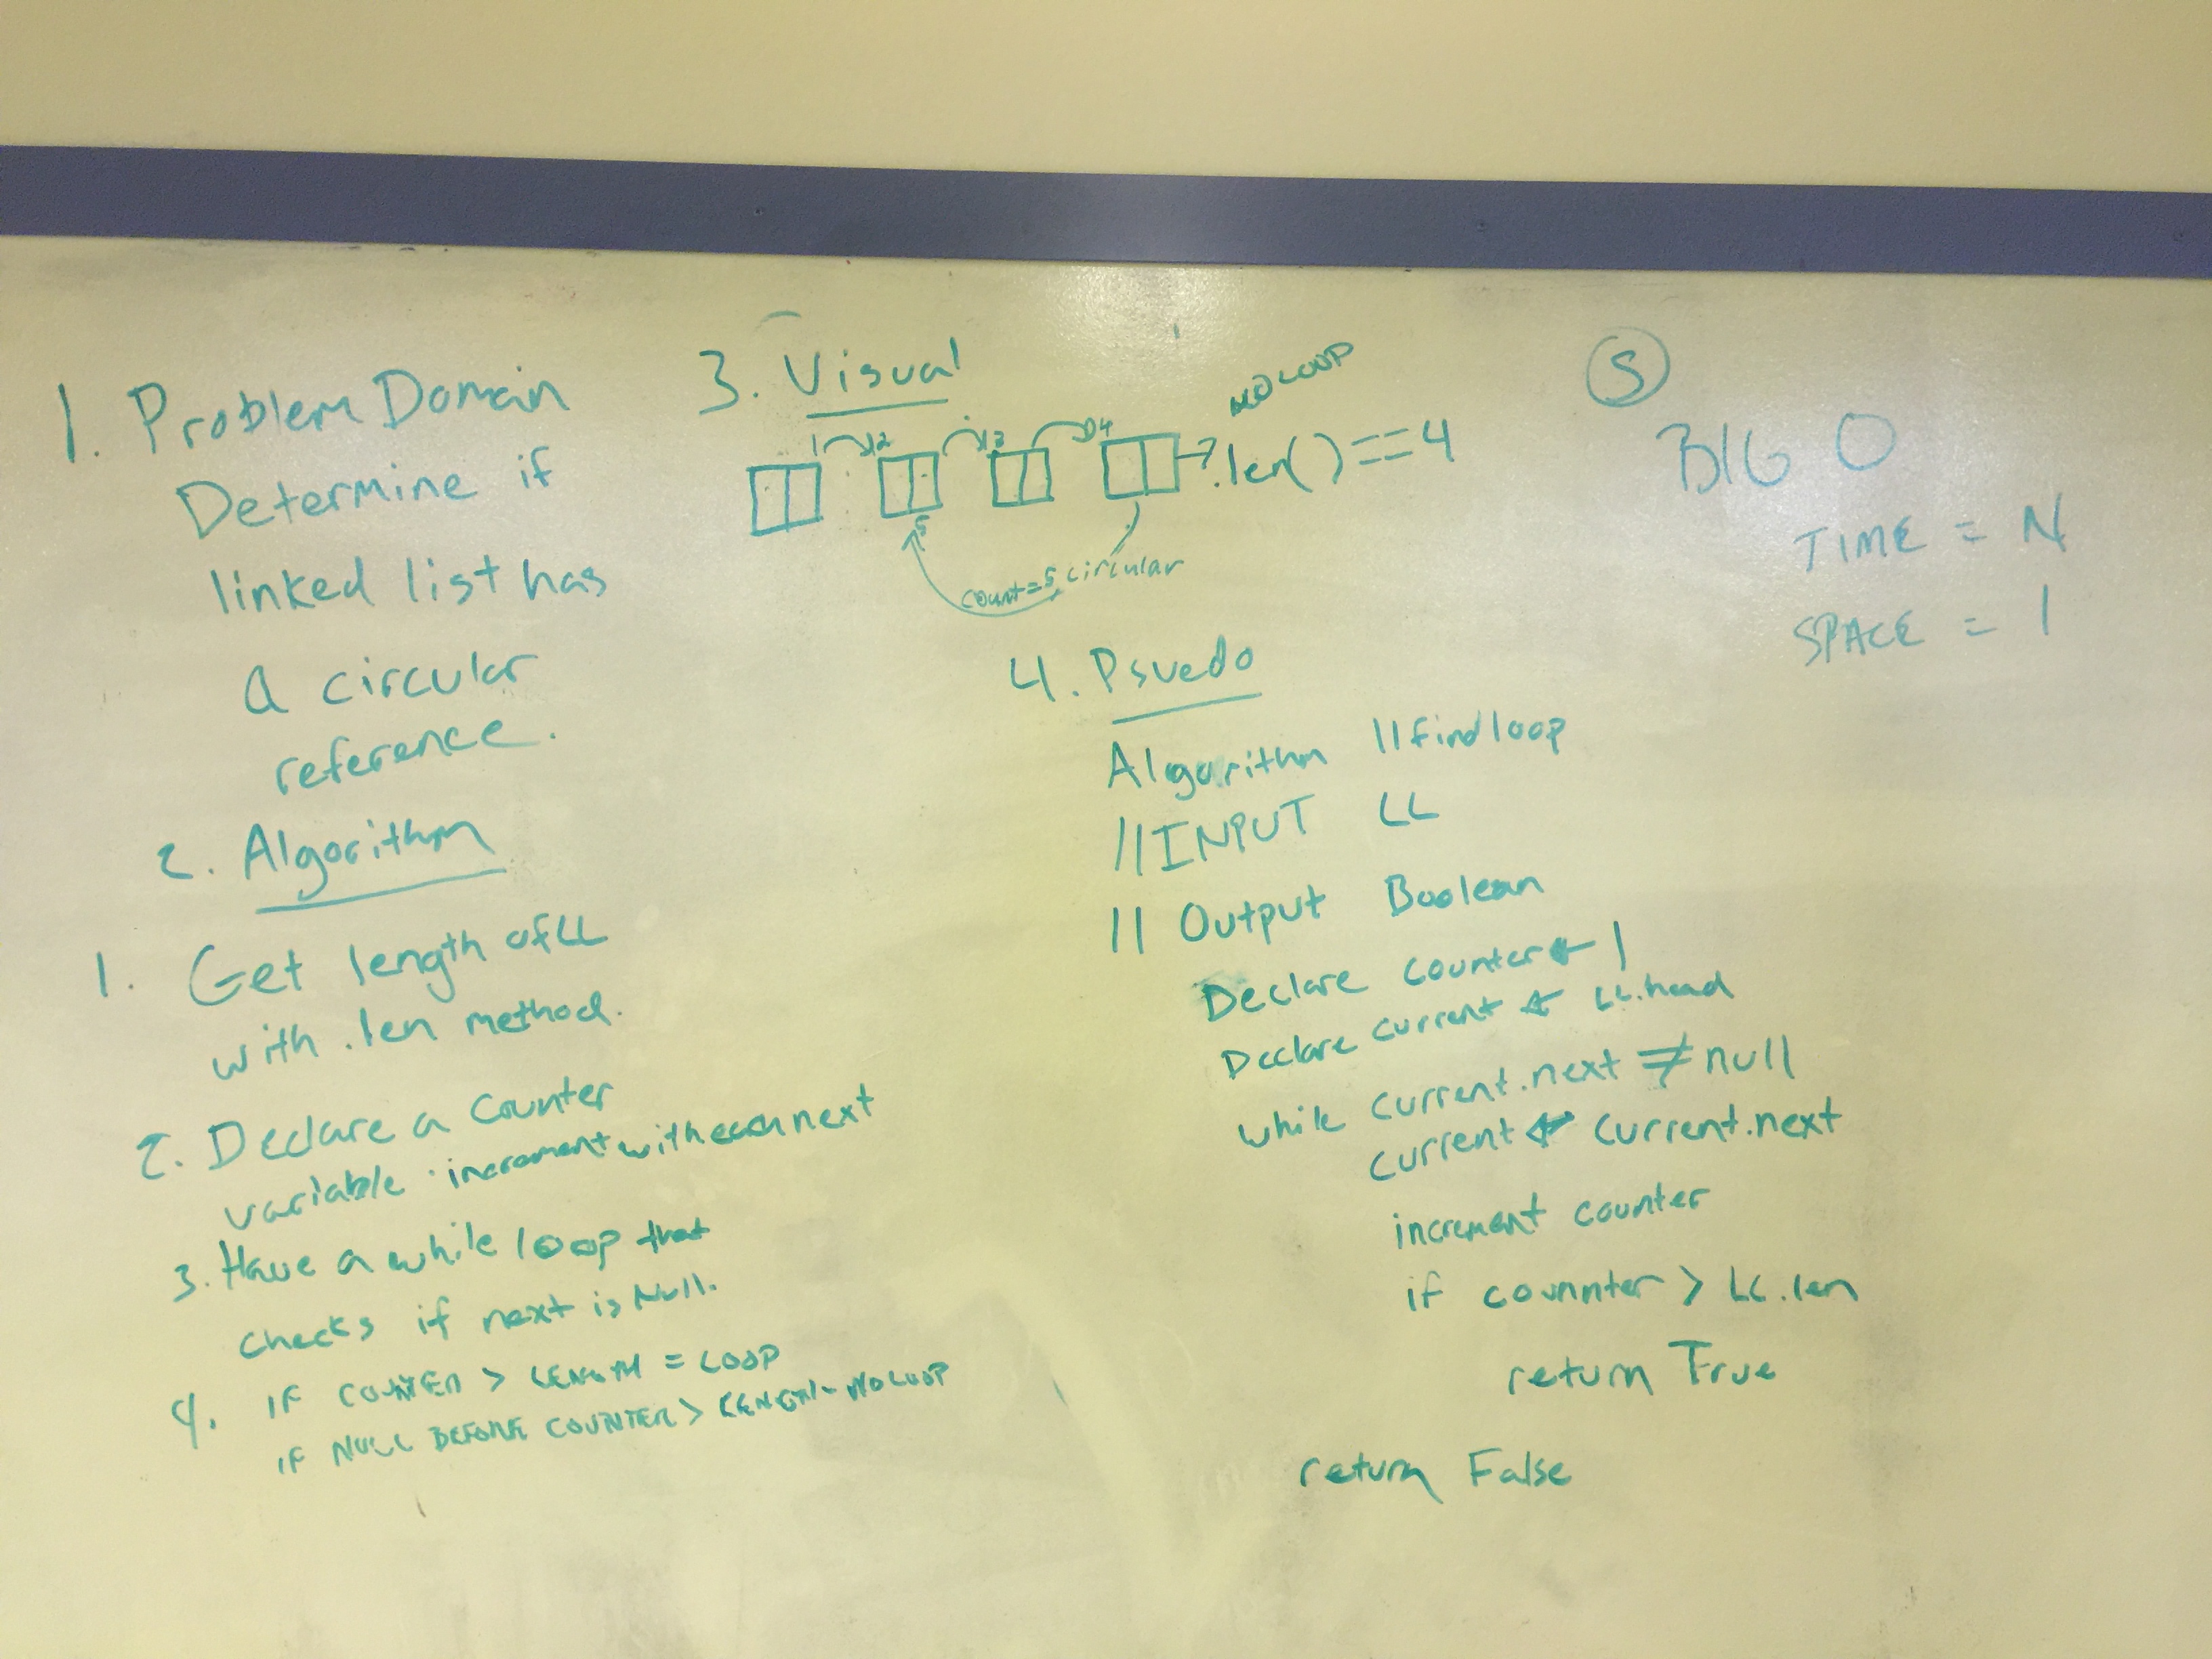 1. Problem Domain
Determine if
linked list has
a circular
reference.
2. Algorithm
1. Get length of LL
with .len method.
2. Declare a Counter
variable. increment with each next
3. Have a while loop that
checks if next is Null.
4. IF COUNTER > LENGTH = LOOP
IF NULL BEFORE COUNTER > LENGTH - NO LOOP
3. Visual
NO LOOP
1 2 3 4
.len() == 4
5
count=5 circular
4. Psvedo
Algorithm // find loop
// INPUT LL
// Output Boolean
Declare counter ← 1
Declare current ← LL.head
while current.next ≠ null
current ← current.next
increment counter
if counnter > LL.len
return True
return False
5
BIG O
TIME = N
SPACE = 1